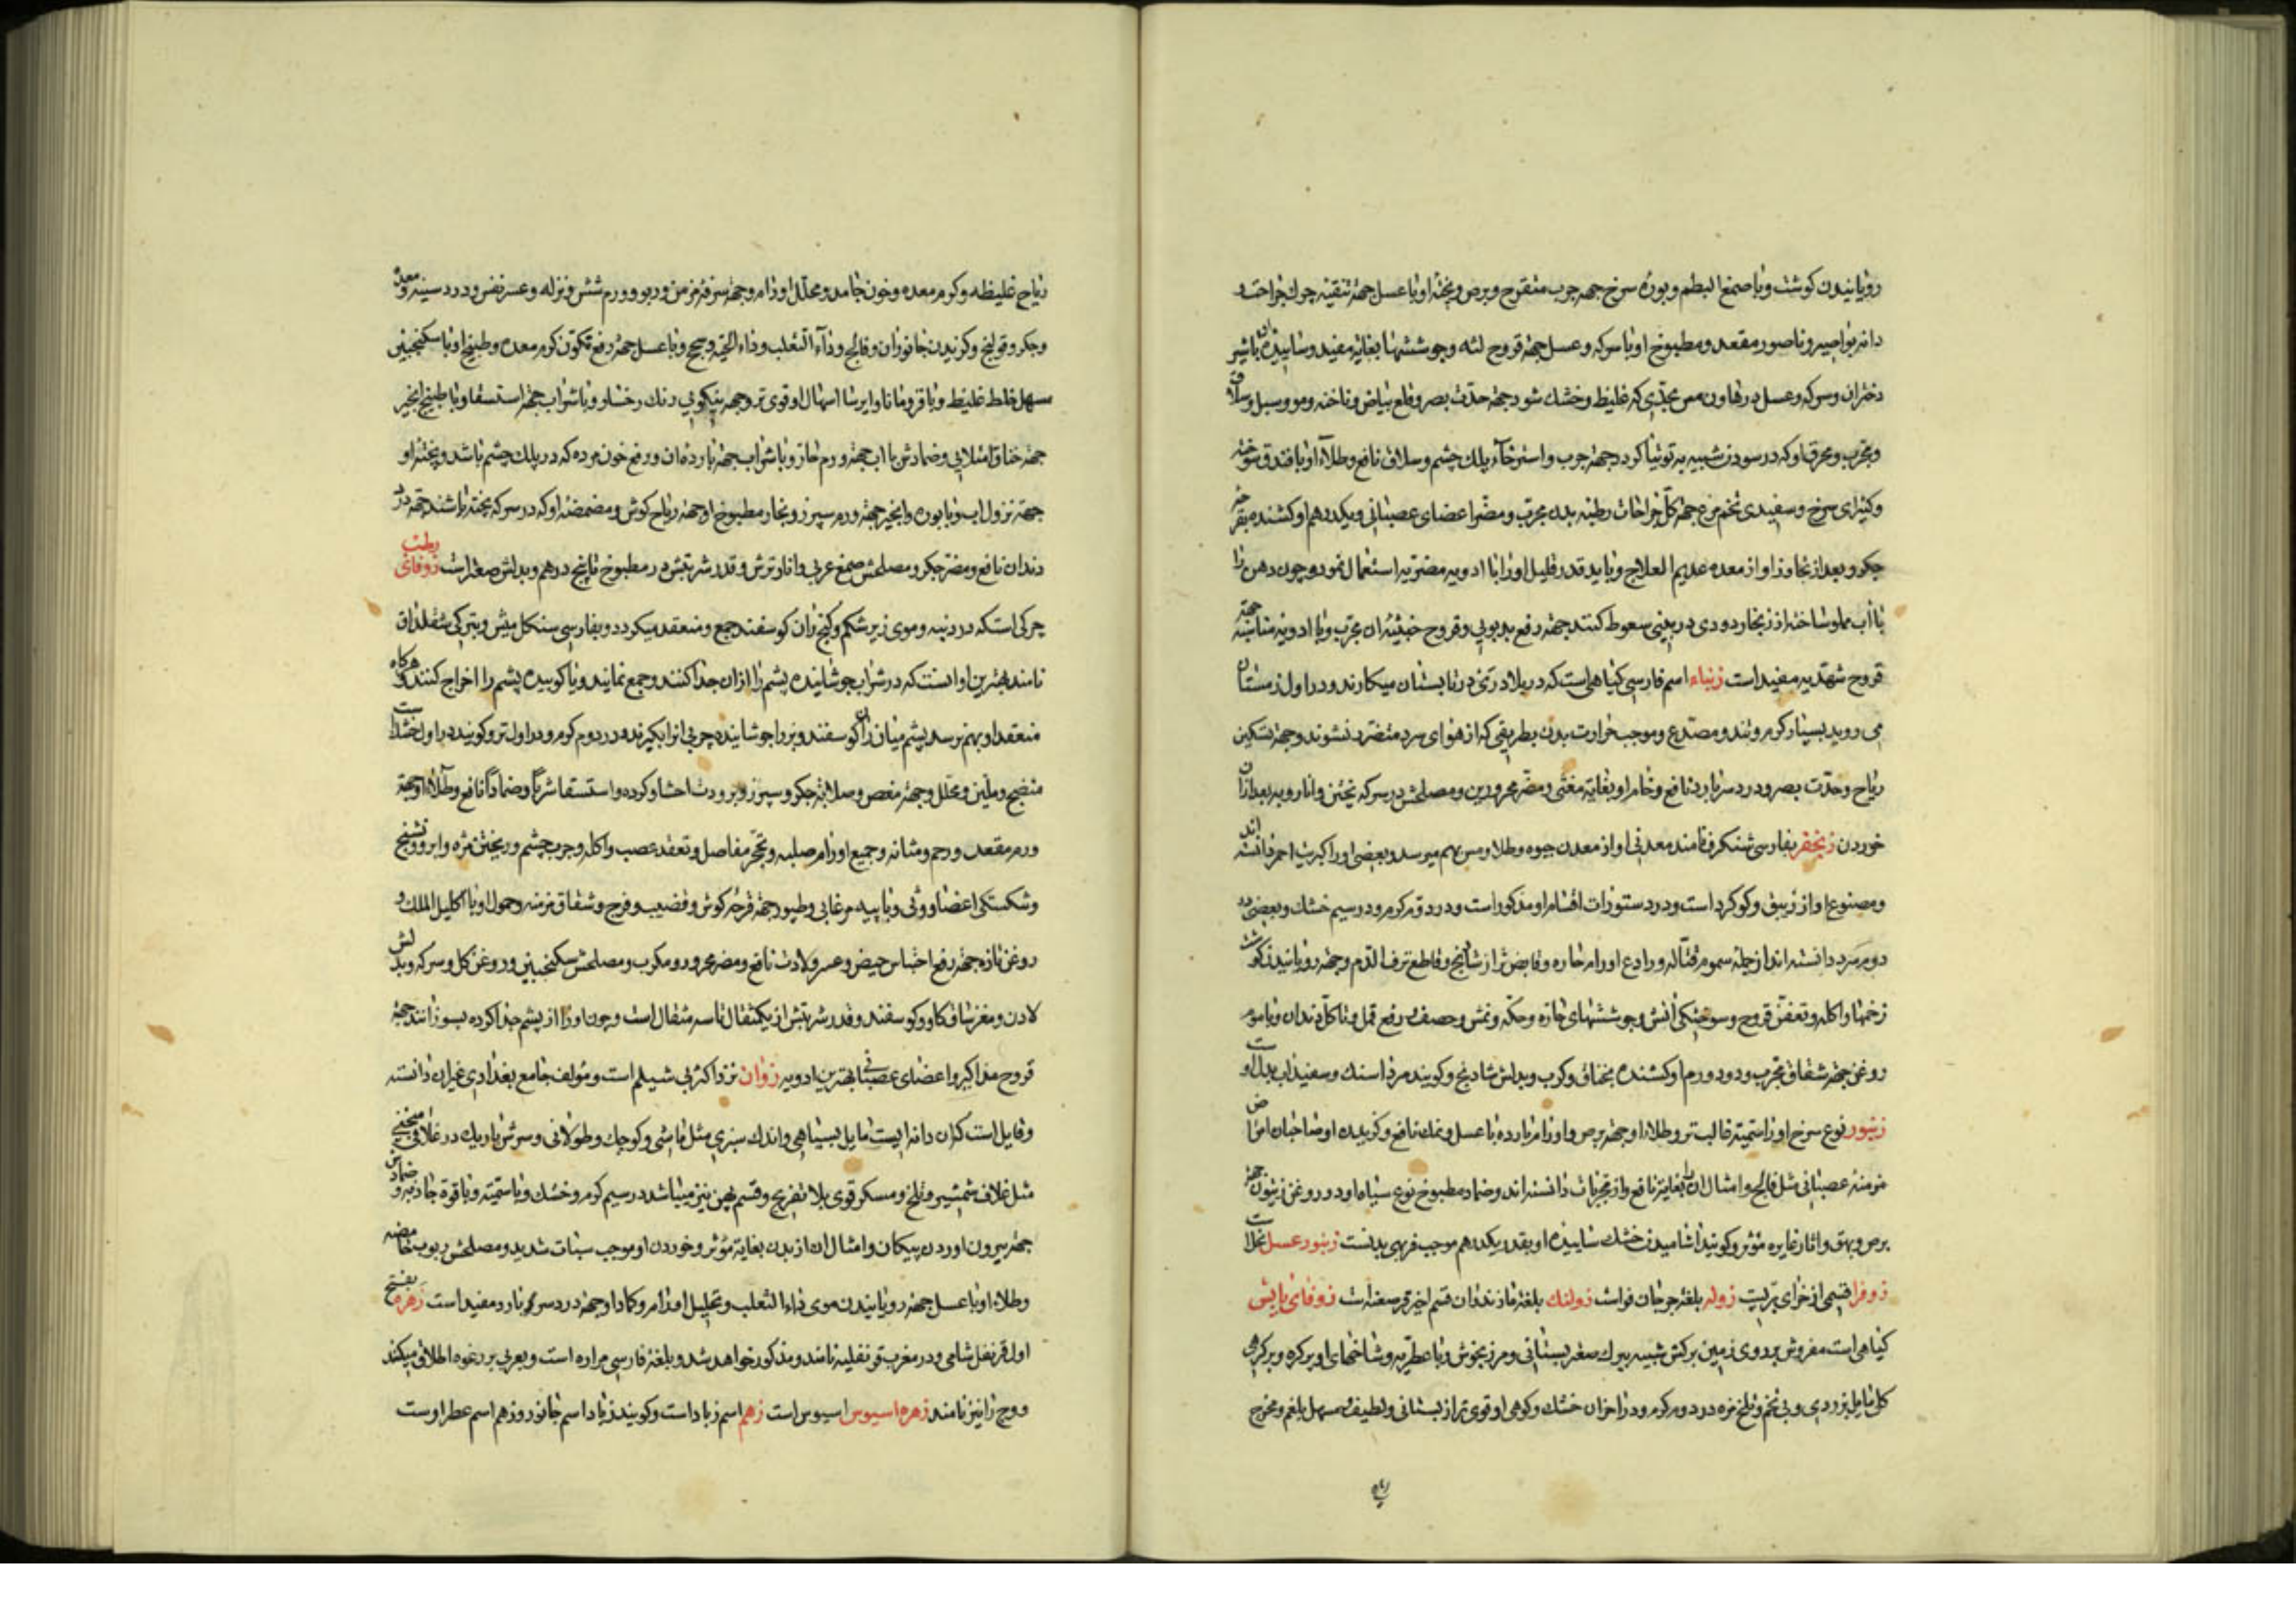 رویانیدن کوشت و با صمغ البطم و بوره سرخ جهه جرب متقرح و برص و پخته او با عسل جهه تنقیه چرک جراحت و
دانه بواصیر و ناصور مقعد و مطبوخ او با سرکه و عسل جهه قروح لثه و جوششها بغایه مفید و ساییده ان با شیر
دختران و سرکه و عسل در هاون مس بحدی که غلیظ و خشک شود جهه حدت بصر و قلع بیاض و ناخنه و مو و سبل و سلاق
و مجرب و محرق او که در سودن شبیه به توتیا کردد جهه جرب و استرخآء پلک چشم و سلاق نافع و طلاء او با فندق سوخته
و کتیرای سرخ و سفیدی تخم مرغ جهه کل جراحات رطبه بدن مجرب و مضر اعضای عصبانی و یکدرهم او کشنده بتقرح
جکر و بعد از تجاوز او از معده عدیم العلاج و باید قدر قلیل او را با ادویه مضریه استعمال نمود و چون دهن را
با آب مملو ساخته از زنجار دودی در بینی سعوط کنند جهه رفع بدبویی و قروح خبیثه ان مجرب و با ادویه مناسبه جهه
قروح شهدیه مفید است زنباء اسم فارسی کیاهی است که در بلاد ری در تابستان میکارند و در اول زمستان
می روید بسیار کرم و تند و مصدع و موجب حرارت بدن بطریقی که از هوای سرد متضرر نشوند و جهه تسکین
ریاح وحدت بصر و درد سر بارد نافع و خام او بغایه مغثی و مضر محرورین و مصلحش در سرکه پختن و انار و به بعد از ان
خوردن زنجفر بفارسی شنکرف نامند معدنی او از معدن جیوه و طلا و مس بهم میرسد و بعضی او را کبریت احمر دانسته اند
و مصنوع او از زیبق و کوکرد است و در دستورات اقسام او مذکور است و در دوم کرم و در سیم خشک و بعضی در
دوم سرد دانسته اند از جمله سموم قتاله و رادع اورام حاره و قابض تر از شادنج و قاطع نزف الدم و جهه رویانیدن کوشت
زخمها و اکله و تعفن قروح و سوختکی آتش و جوششهای حاره و حکه و نمش و حصف و رفع قمل و تاکل دندان و با موم
روغن جهه شقاق مجرب و دو درم او کشنده بخناق و کرب و بدلش شادنج و کویند مردار سنک و سفیداب بدل او
زنبور نوع سرخ او را سمیه غالبتر و طلاء او جهه برص و اورام بارده با عسل و نمک نافع و کزیدن او صاحبان امراض
مزمنه عصبانی مثل فالج و امثال ان بغایه نافع و از مجربات دانسته اند و ضماد مطبوخ نوع سیاه او در روغن زیتون جهه
برص و بهق و اثار غایره مؤثر و کویند اشامیدن خشک ساییده او بقدر یکدرهم موجب فربهی بدنست زنبور عسل نحل است
زوفرا قسمی از خزای بریست زوله بلغه جرجان فو است زولنک بلغه مازندران قسم اخیر قرصعنه است زوفای یابس
کیاهی است مفروش بر روی زمین برکش شبیه ببرک صعتر بستانی و مرزنجوش و با عطریه و شاخهای او پر کره و بر کرهی
کلی مایل بزردی و بی تخم و تلخ مزه در دوم کرم و در اخر ان خشک و کوهی او قوی تر از بستانی و لطیف و مسهل بلغم و مخرج
ریاح غلیظه و کرم معده و خون جامد و محلل اورام و جهه سرفه مزمن و ربو و ورم شش و نزله و عسر نفس و درد سینه و معده
و جکر و قولنج و کزیدن جانوران و فالج و داء الثعلب و داء الحیه و سحج و با عسل جهه رفع تکون کرم معده و طبیخ او با سکنجبین
مسهل خلط غلیظ و با قردمانا و ایرسا اسهال او قوی تر و جهه نیکویی رنک رخسار و با شراب جهه استسقا و با طبیخ انجیر
جهه خناق امتلایی و ضمادش با آب جهه ورم حار و با شراب جهه بارد ان و رفع خون مرده که در پلک چشم باشد و پخته او
جهه نزول اب و با بوره و انجیر جهه ورم سپرز و بخار مطبوخ او جهه ریاح کوش و مضمضه او که در سرکه پخته باشند جهه درد
دندان نافع و مضر جکر و مصلحش صمغ عربی و انار ترش و قدر شربتش در مطبوخ تا پنج درهم و بدلش صعتر است زوفای رطب
چرکی است که در دنبه و موی زیر شکم و کنج ران کوسفند جمع و منعقد میکردد و بفارسی سنکل میش و بترکی
نامند بهترین او انست که در شراب جوشانیده پشم را از ان جدا کنند و جمع نمایند و یا کوبیده پشم را اخراج کنند و هرکاه
منعقد او بهم نرسد پشم میان ران کوسفند و بز را جوشانیده چربی انرا بکیرند و در دوم کرم و در اول تر و کویند در اول خشک است
منضج و ملین و محلل و جهه مغص و صلابه جکر و سپرز و برودت احشا و کرده و استسقا شربا و ضمادا نافع و طلاء او جهه
ورم مقعد و رحم و مثانه و جمیع اورام صلبه و تحجر مفاصل و تعقد عصب و اکله و جرب چشم و ریختن مژه و ابرو و تشنج
و شکستکی اعضا و وثی و با پیه مرغابی و طیور جهه قرحه کوش و قضیب و فرج و شقاق مزمنه و حمول او با اکلیل الملک و
روغن تازه جهه رفع احتباس حیض و عسر ولادت نافع و مضر محرور و مکرب و مصلحش سکنجبین و روغن کل و سرکه و بدلش
لادن و مغز ساق کاو و کوسفند و قدر شربتش از یکمثقال تا سه مثقال است و چون او را از پشم جدا کرده بسوزانند جهه
قروح مذاکیر و اعضای عصبانی بهترین ادویه زوان نزد اکثری شیلم است و مؤلف جامع بغدادی غیر ان دانسته
و قایل است که ان دانه ایست مایل بسیاهی و اندک سبزی مثل ماشی و کوچک و طولانی و سرش باریک در غلافی منحنی
مثل غلاف شمشیر و تلخ و مسکر قوی بلا تفریح و قسم پهن نیز میباشد در سیم کرم و خشک و با سمیته و با قوة جاذبه و ضمادش
جهه بیرون اوردن پیکان و امثال ان از بدن بغایه مؤثر و خوردن او موجب سبات شدید و مصلحش ربوب حامضه
و طلاء او با عسل جهه رویانیدن موی داء الثعلب و تحلیل اورام و کماد او جهه درد سر بارد مفید است زهره بفتح
اول قرنفل شامی و در مغرب قرنفلیه نامند و مذکور خواهد شد و بلغه فارسی مراره است و بعربی بر رغوه اطلاق میکنند
و وج را نیز نامند زهره اسیوس اسیوس است زهم اسم زباد است و کویند زباد اسم جانور و زهم اسم عطر اوست